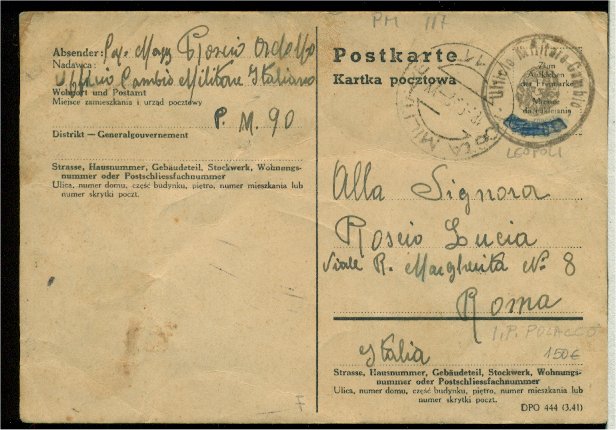 PM 117
Absender: Cap. Magg Roscio Ardolfo
Nadawca:
Ufficio Cambio Militare Italiano
Wohnort und Postamt
Miejsce zamieszkania i urząd pocztowy
P. M. 90
Distrikt — Generalgouvernement
Strasse, Hausnummer, Gebäudeteil, Stockwerk, Wohnungs-
nummer oder Postschliessfachnummer
Ulica, numer domu, część budynku, piętro, numer mieszkania lub
numer skrytki poczt.
F
Postkarte
Kartka pocztowa
Ufficio Militare Cambio
Zum
Aufkleben
der Freimarke
Miejsce
na
LEOPOLI
POSTA MILITARE
Alla Signora
Roscio Lucia
Viale R. Margherita N° 8
Roma
I.P. POLACCO
150€
Italia
Strasse, Hausnummer, Gebäudeteil, Stockwerk, Wohnungs-
nummer oder Postschliessfachnummer
Ulica, numer domu, część budynku, piętro, numer mieszkania lub
numer skrytki poczt.
DPO 444 (3.41)